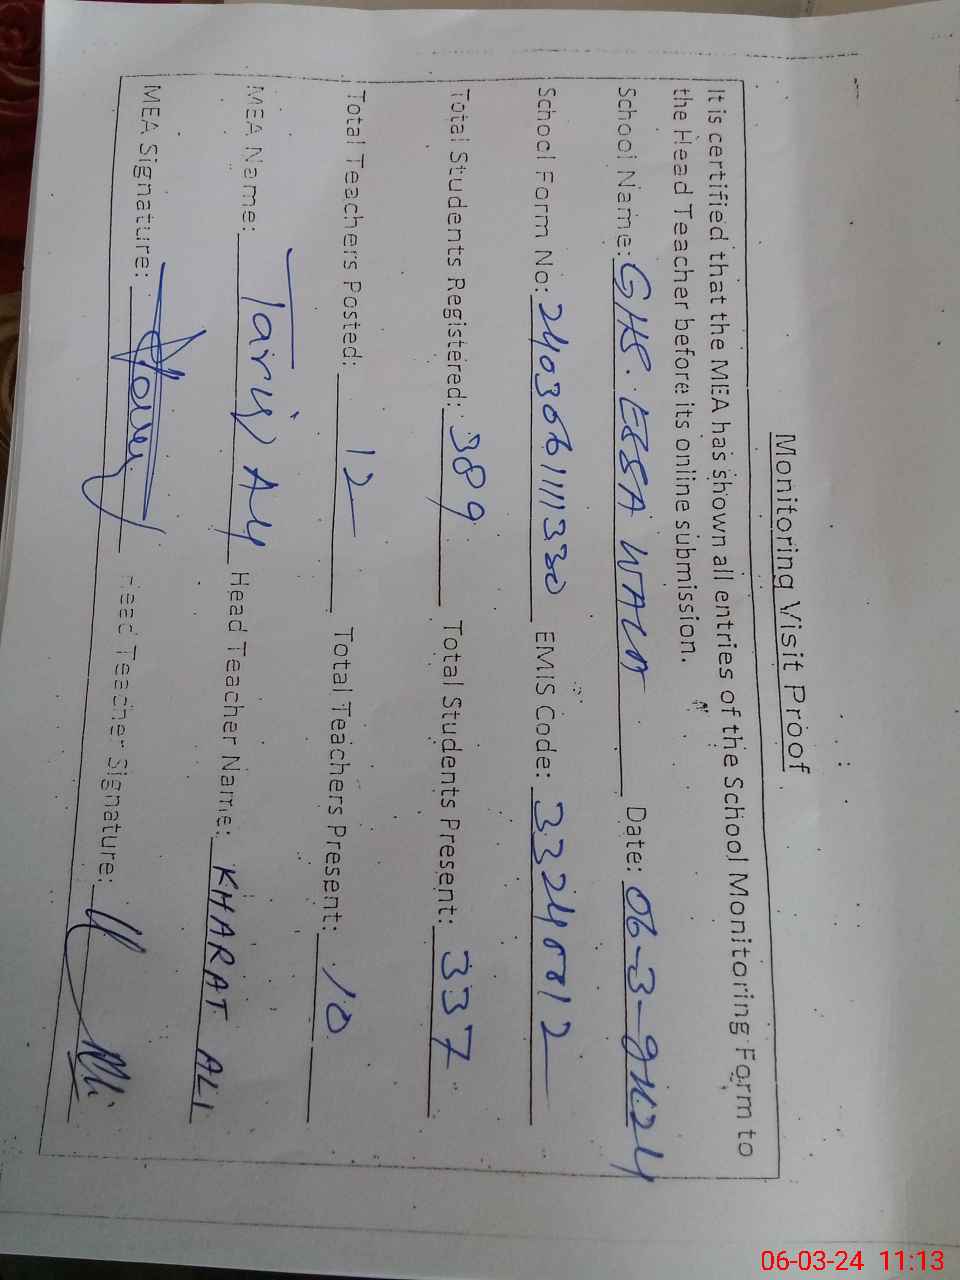 Monitoring Visit Proof
It is certified that the MEA has shown all entries of the School Monitoring Form to
the Head Teacher before its online submission.
School Name: GHS. ESSA WALA Date: 06-3-2024
School Form No: 2403061111330 EMIS Code: 33240012
Total Students Registered: 389 Total Students Present: 337
Total Teachers Posted: 12 Total Teachers Present: 10
MEA Name: Tariq Aly Head Teacher Name: KHARAT ALI
MEA Signature: Head Teacher Signature:
06-03-24 11:13